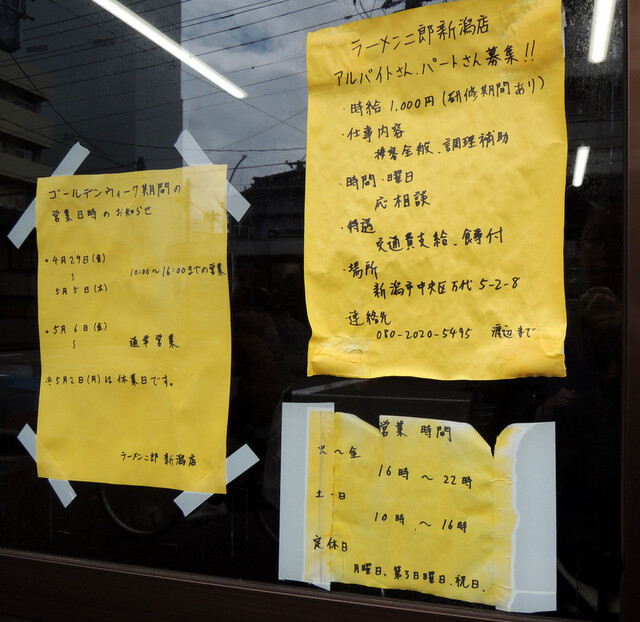 ゴールデンウィーク期間の
営業日時のお知らせ
・4月29日(金)
〜 10:00〜16:00までの営業
5月5日(木)
・5月6日(金)
〜 通常営業
※5月2日(月)は休業日です。
ラーメン二郎 新潟店
ラーメン二郎新潟店
アルバイトさん、パートさん募集!!
・時給 1,000円(研修期間あり)
・仕事内容
接客全般、調理補助
・時間・曜日
応相談
・待遇
交通費支給、食事付
・場所
新潟市中央区万代 5-2-8
・連絡先
050-2020-5495 渡辺まで
営業時間
火〜金
16時〜22時
土・日
10時〜16時
定休日
月曜日、第3日曜日、祝日、